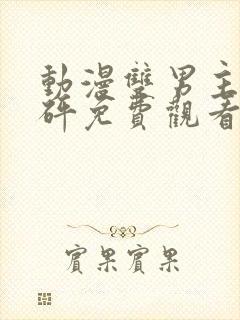 動漫雙男主
砰免費觀看
賓果賓果